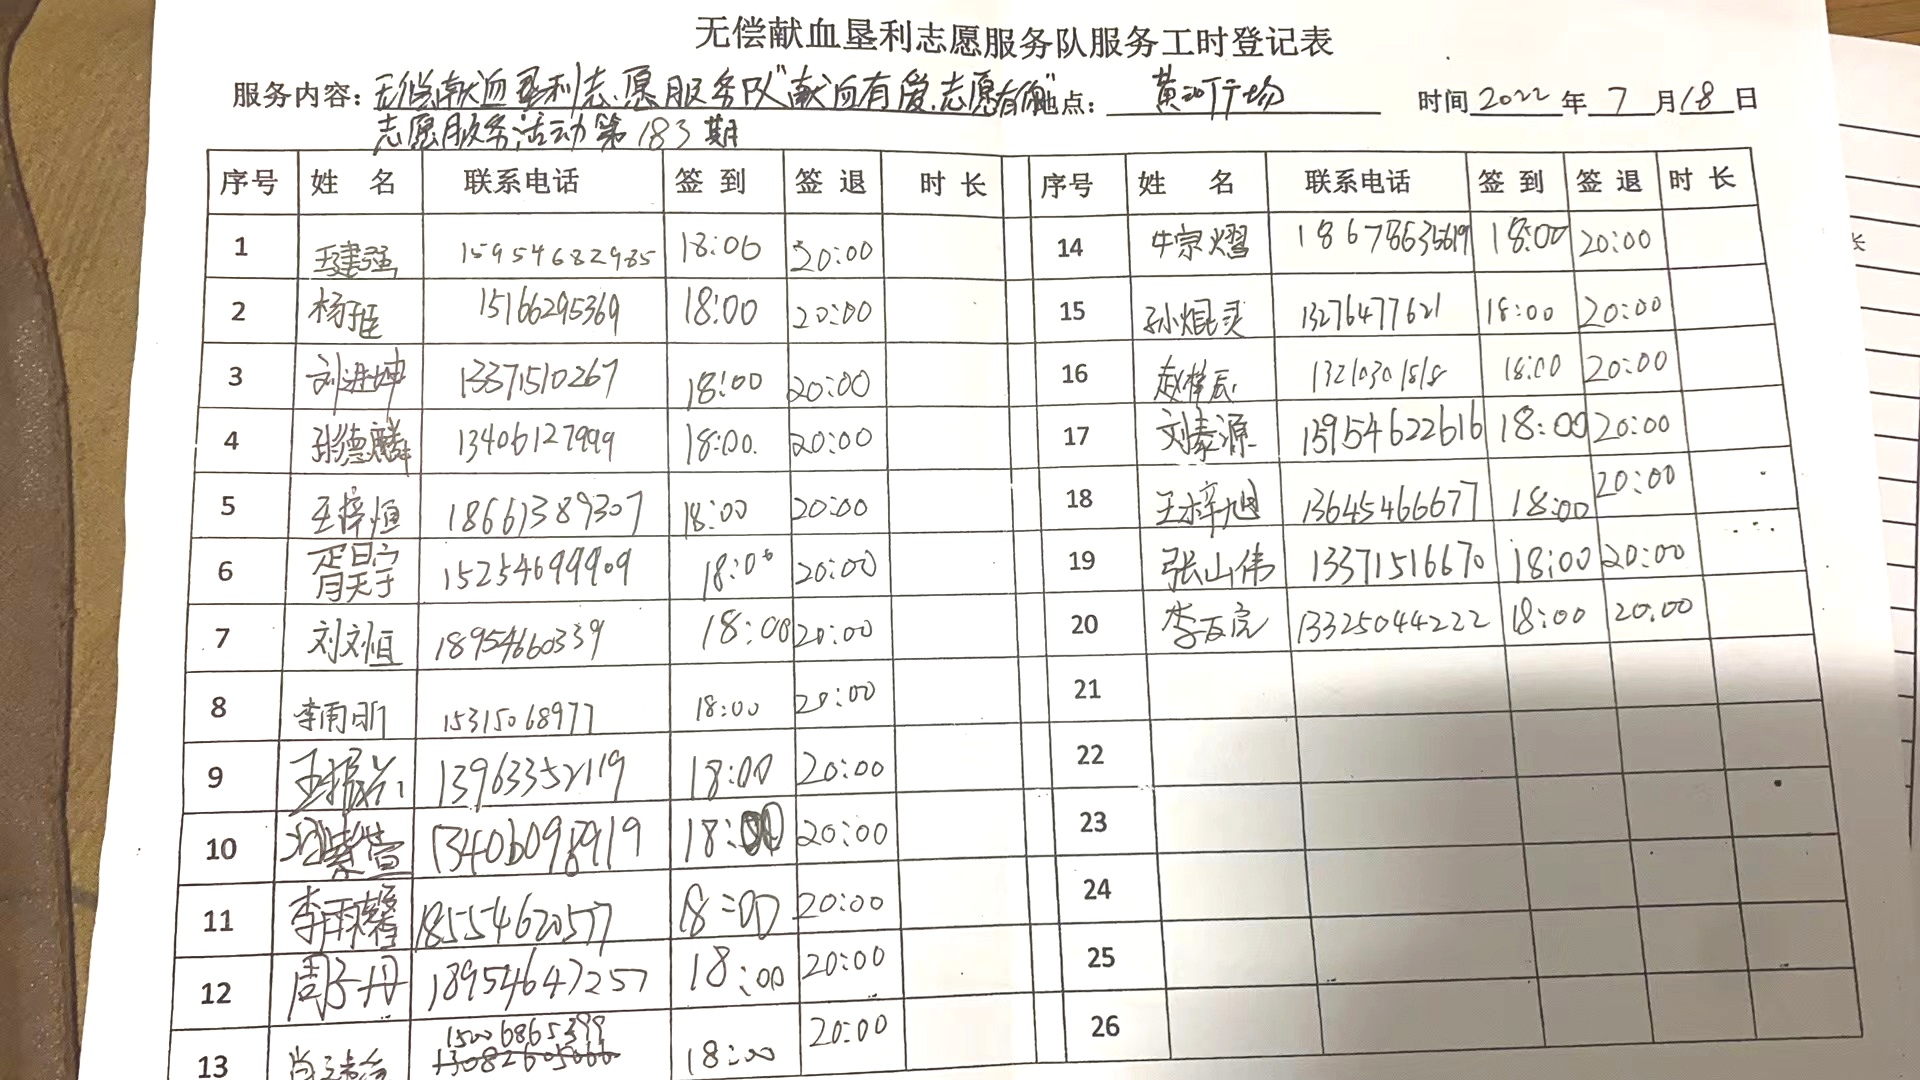 无偿献血垦利志愿服务队服务工时登记表
服务内容：无偿献血垦利志愿服务队"献血有爱、志愿有你" 地点： 黄河广场 时间 2022 年 7 月 18 日
志愿服务活动第183期
序号 姓 名 联系电话 签 到 签 退 时 长 序号 姓 名 联系电话 签 到 签 退 时 长
1 王建强 15954682985 18:00 20:00 14 牛宗熠 18678635619 18:00 20:00
2 杨 15166295369 18:00 20:00 15 孙焜灵 13276477621 18:00 20:00
3 刘进坤 13371510267 18:00 20:00 16 赵梓辰 13210301818 18:00 20:00
4 张德麟 13406127999 18:00. 20:00 17 刘泰源 15954622616 18:00 20:00
5 王梓恒 18661389307 18:00 20:00 18 王梓旭 13645466677 18:00 20:00
6 15254699909 18:00 20:00 19 张山伟 13371516670 18:00 20:00
7 刘文恒 18954660339 18:00 20:00 20 李 13325044222 18:00 20:00
8 李雨昕 15315068977 18:00 20:00 21
9 王振 13963352119 18:00 20:00 22
10 紫萱 13406098919 18:00 20:00 23
11 李雨馨 18554620577 18:00 20:00 24
12 周子丹 18954647257 18:00 20:00 25
13 肖 15006865399 18:00 20:00 26
13082605066